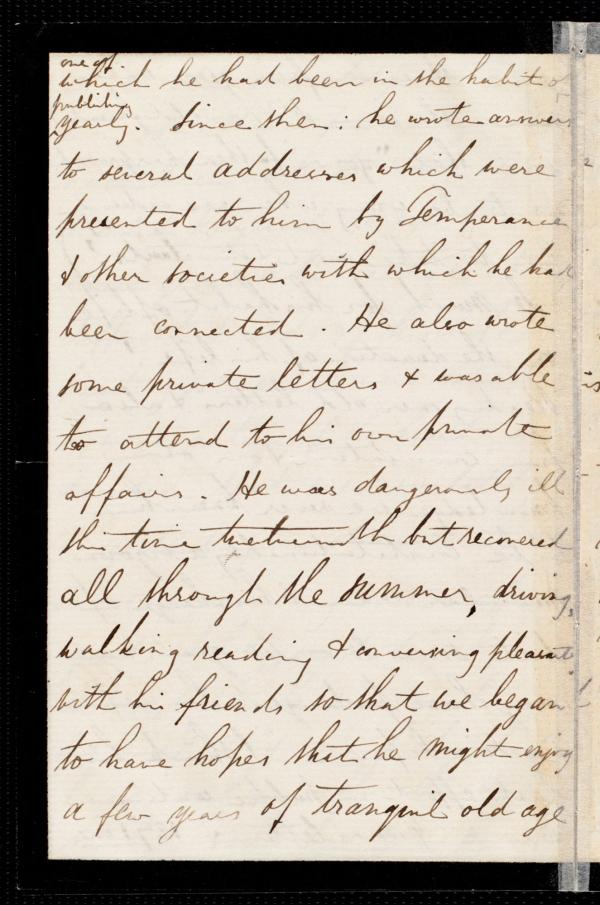 one of
which he had been in the habit of
publishing
yearly. Since then: he wrote answers
to several addresses which were
presented to him by Temperance
& other societies with which he had
been connected. He also wrote
some private letters & was able
to attend to his own private
affairs. He was dangerously ill
this time twelvemonth but recovered
all through the summer, driving,
walking reading & conversing pleasantly
with his friends so that we began
to have hopes that he might enjoy
a few years of tranquil old age